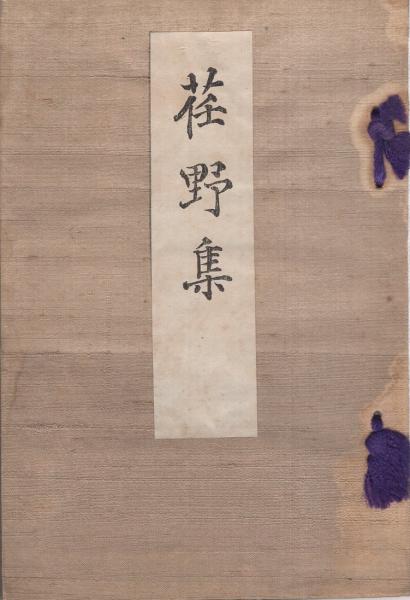 荏野集